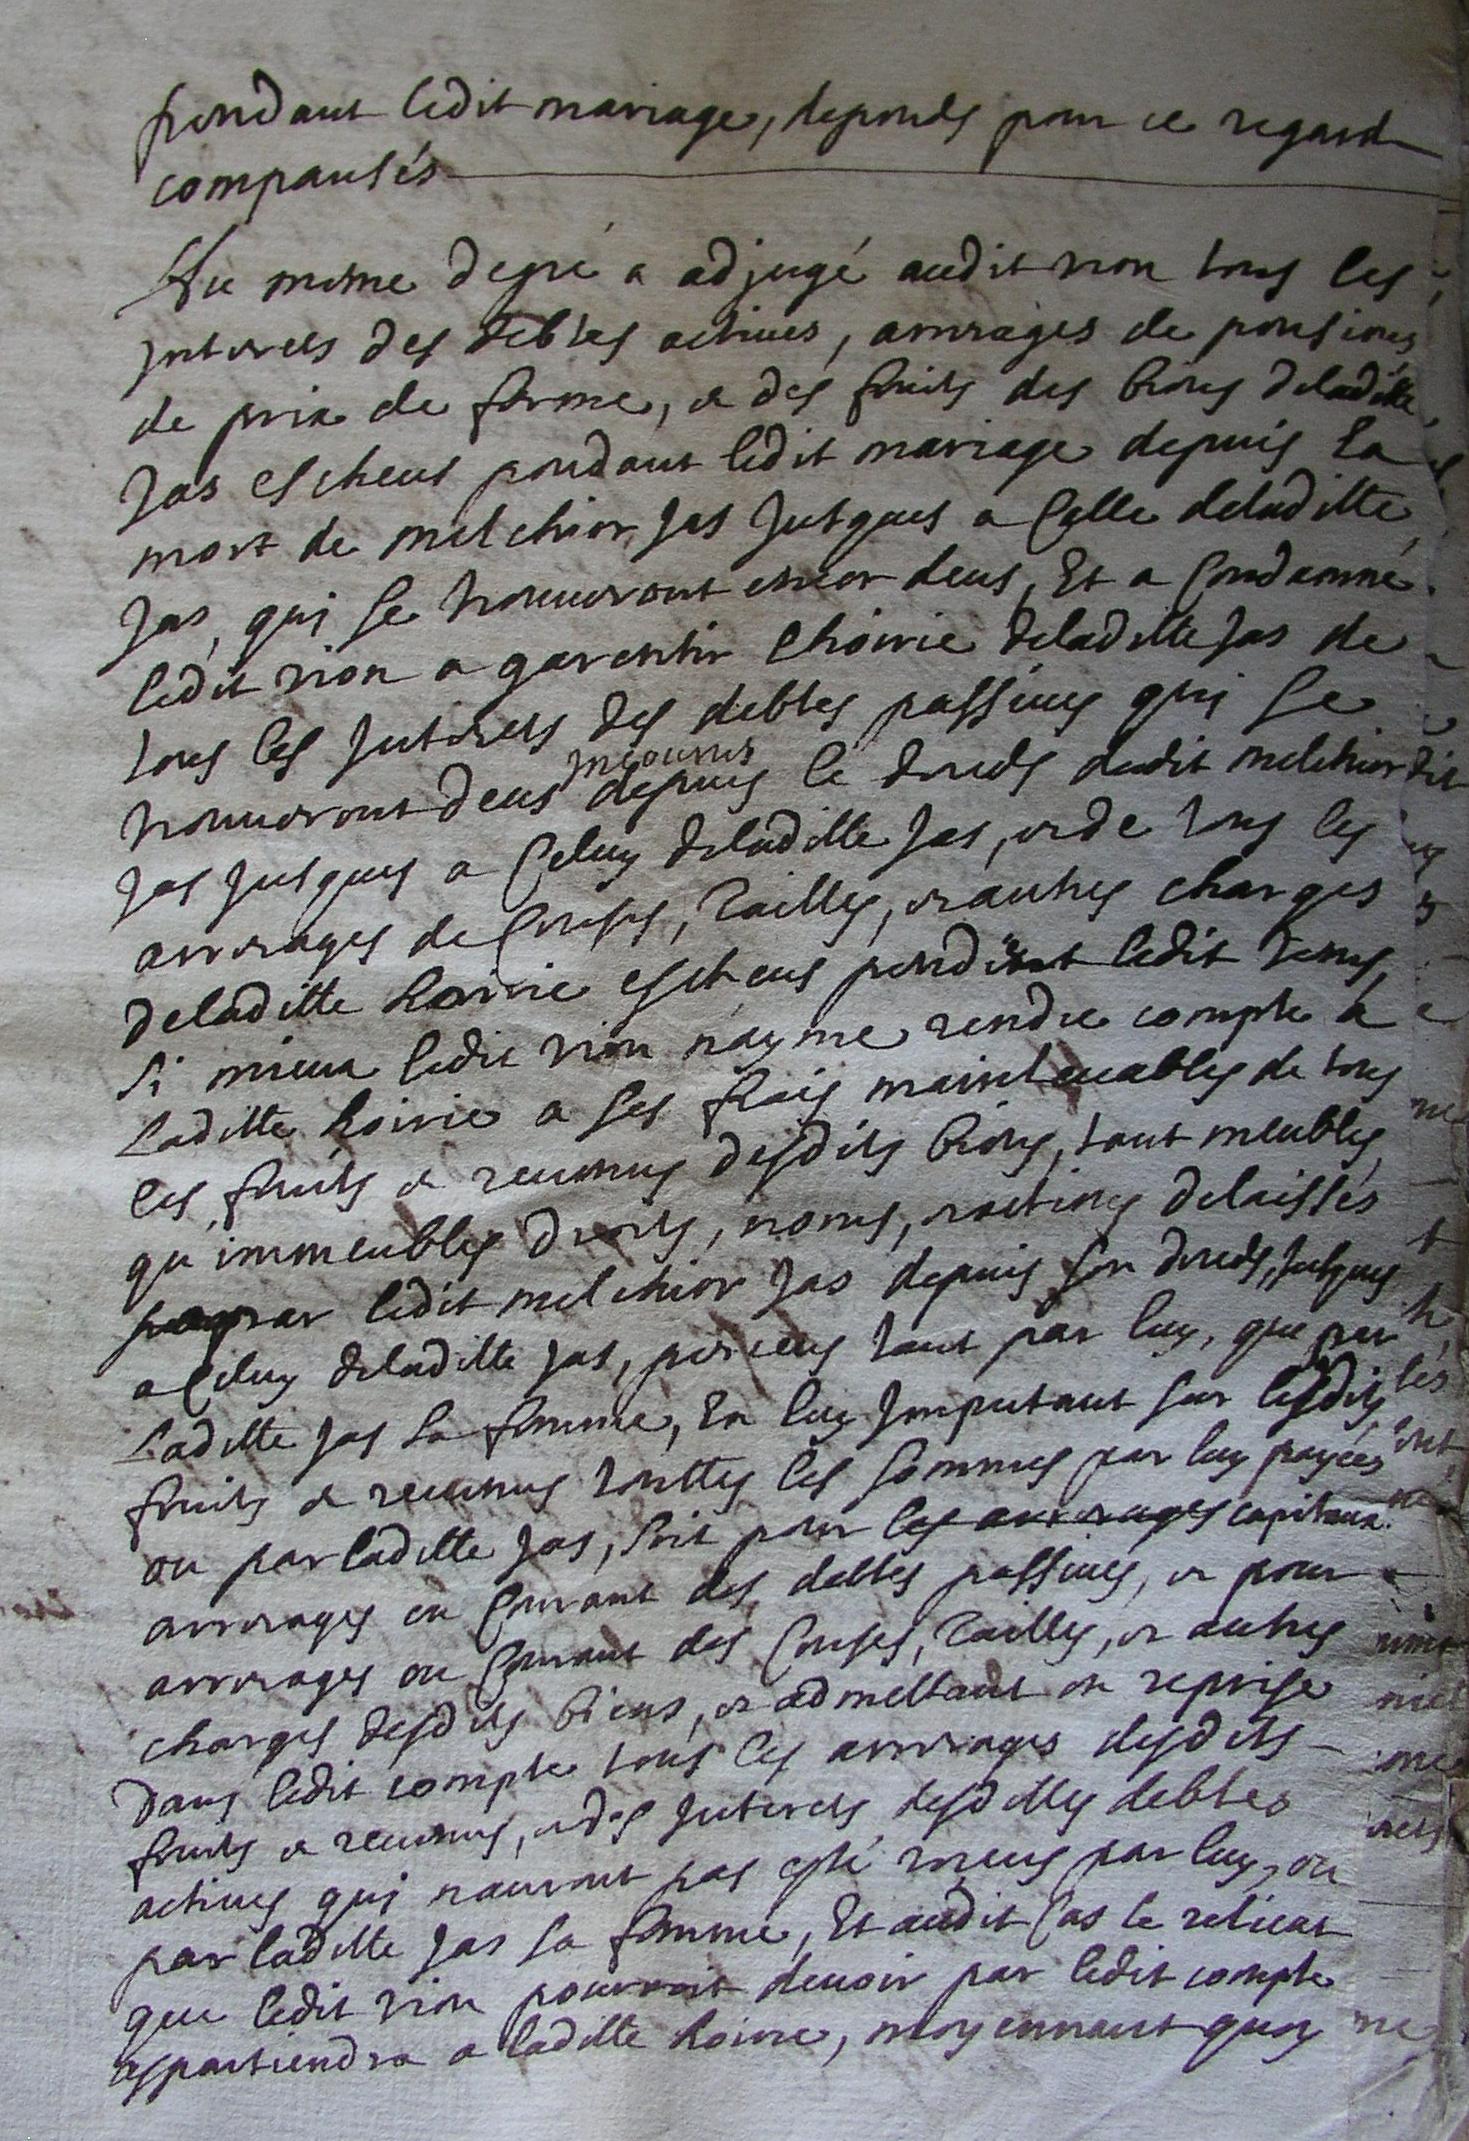 pendant ledit mariage, depends pour ce regard
compansés
Au mesme degré a adjugé audit rion tous les
jnterets des debtes actives, arrerages de pensions
de prix de ferme, & des fruits des biens deladitte
Jas escheus pendant ledit mariage depuis la
mort de melchior Jas Jusques a Celle deladitte
Jas, qui se trouveront encor deus, Et a Condamné
ledit rion a garentir lhoirie deladitte Jas de
tous les jnterets des debtes passives qui se
trouveront deus jncourus depuis le deceds dudit melchior
Jas jusques a Celuy deladitte Jas, & de tous les
arrerages de Censes, Tailles, & autres charges
deladitte hoirie escheus pendant ledit temps,
Si mieux ledit rion n'ayme rendre compte à
Laditte hoirie a ses frais maintenables de tous
les fruits & revenus desdits biens, tant meubles
qu'immeubles droits, noms, & actions delaissés
par ledit melchior Jas depuis son deceds, Jusques
a Celuy deladitte Jas, perceus tant par luy, que par
Laditte Jas sa femme, En luy Jmputant sur lesdits
fruits & revenus touttes les sommes par luy payées
ou par laditte Jas, soit pour les arrerages capitaux
arrerages ou Courant des debtes passives, & pour
arrerages ou Courant des Censes, Tailles, & autres
charges desdits biens, & admettant en reprise
Dans ledit compte tous les arrerages desdits
fruits & revenus, & des Jnterets desdittes debtes
actives qui nauront pas esté receus par luy, ou
par laditte Jas sa femme, Et audit Cas le relicat
que ledit rion pourroit devoir par ledit compte
appartiendra a laditte hoirie, moyennant quoy